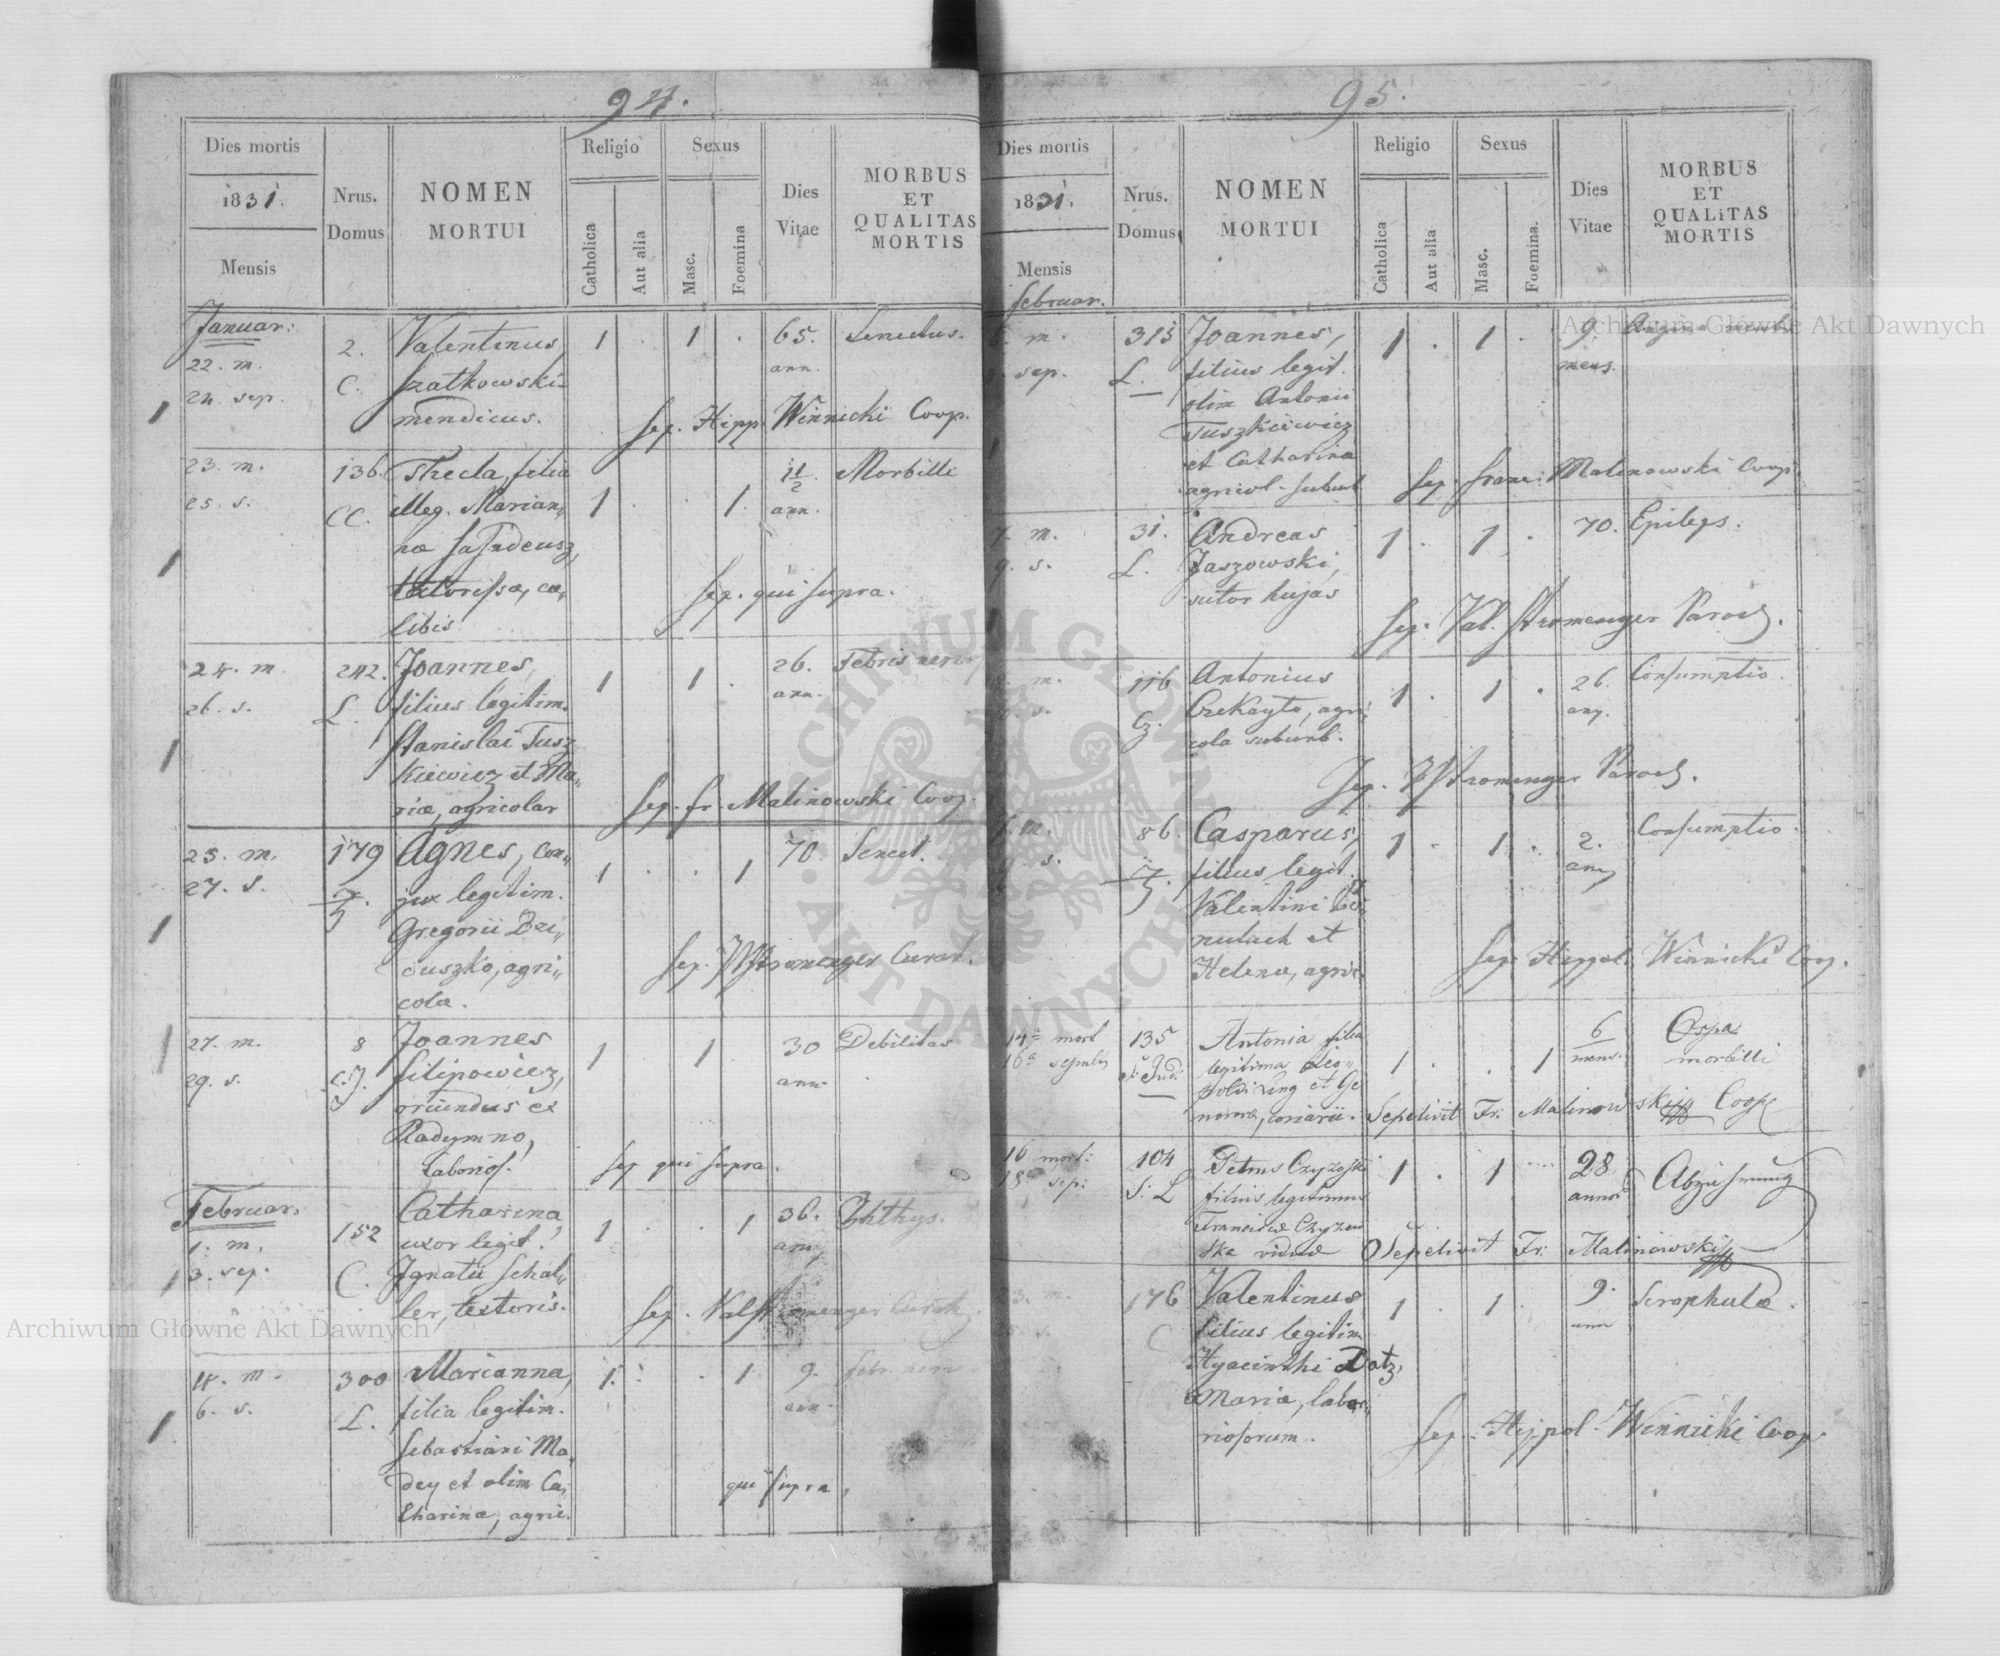 94.
Dies mortis
1831.
Mensis
Nrus.
Domus
NOMEN
MORTUI
Religio
Catholica
Aut alia
Sexus
Masc.
Foemina
Dies
Vitae
MORBUS
ET
QUALITAS
MORTIS
Januar:
22. m.
24. sep.
2.
C.
Valentinus
Szatkowski
mendicus.
1 . 1 .
65.
ann.
Senectus.
Sep. Hipp. Winnicki Coop.
23. m.
25. s.
136.
CC.
Thecla, filia
illeg. Marian„
næ
cæ„
libis.
1 . . 1.
1 1/2
ann.
Morbilli
Sep. qui supra.
24. m.
26. s.
242.
L.
Joannes,
filius legitim.
Stanislai Tusz
kiewicz et Ma„
riæ, agricolar
1 . 1 .
26.
ann.
Febris
Sep. fr. Malinowski Coop.
25. m.
27. s.
179
Agnes, con„
jux legitim.
Gregorii Dzi„
duszko, agri„
colæ.
1 . . 1
70.
Senect.
Sep. Stromenger Curat.
27. m.
29. s.
8
Joannes
Filipowicz,
oriundus ex
Radymno,
laborios.
1 . 1 .
30
ann.
Debilitas
Sep qui supra.
Februar.
1. m.
3. sep.
152
C.
Catharina,
uxor legit.
Ignatii Schal„
ler, textoris.
1 . . 1
36.
ann.
Phthys.
Sep. Val Stromenger Curat.
4. m.
6. s.
300
L.
Marianna,
filia legitim.
Sebastiani Ma„
dey et olim Ca„
tharinæ, agric.
1. . . 1
9.
ann.
qui supra,
95.
Dies mortis
1831.
Mensis
Februar.
Nrus.
Domus
NOMEN
MORTUI
Religio
Catholica
Aut alia
Sexus
Masc.
Foemina.
Dies
Vitae
MORBUS
ET
QUALITAS
MORTIS
m.
sep.
315
L.
Joannes,
filius legit.
olim Antonii
Tuszkiewicz
et Catharina
agricol. suburb
1 . 1 .
9
mens.
Angina
Sep. Franc. Malinowski Coop
7. m.
9. s.
31.
L.
Andreas
Jaszowski,
sutor hujas
1 . 1 .
70.
Epileps.
Sep. Val. Stromenger Paroch.
m.
s.
116
Cz.
Antonius
Czekayto, agri„
cola suburb.
1 . 1 .
26.
ann.
Consumptio.
Sep. Stromenger Paroch.
m.
s.
86.
Casparus,
filius legit.
Valentini
nulach et
Helenæ, agric.
1 . 1 .
2.
ann.
Consumptio.
Sep. Hippol. Winnicki Coop.
14 mort
16
135
Antonia filia
legitima Leo„
poldi Ling et Ge
novevæ, coriarii.
1 . . 1
6
mens.
Ospa
morbilli
Sepelivit Fr: Malinowski Coop
16 mort:
18 sep:
104
S: L
Petrus Czyzoski
filius legitimus
Franciscæ Czyzow
ska viduæ
1 . 1
28
annor
Abzehrung
Sepelivit Fr: Malinowski
23. m.
176
C
Valentinus
filius legitim
Hyacinthi Datz,
Mariæ, labo„
riosorum.
1 . 1 .
9.
ann
Scrophulæ.
Sep. Hippol. Winnicki Coop.
Archiwum Główne Akt Dawnych
Archiwum Główne Akt Dawnych
ARCHIWUM GŁÓWNE AKT DAWNYCH